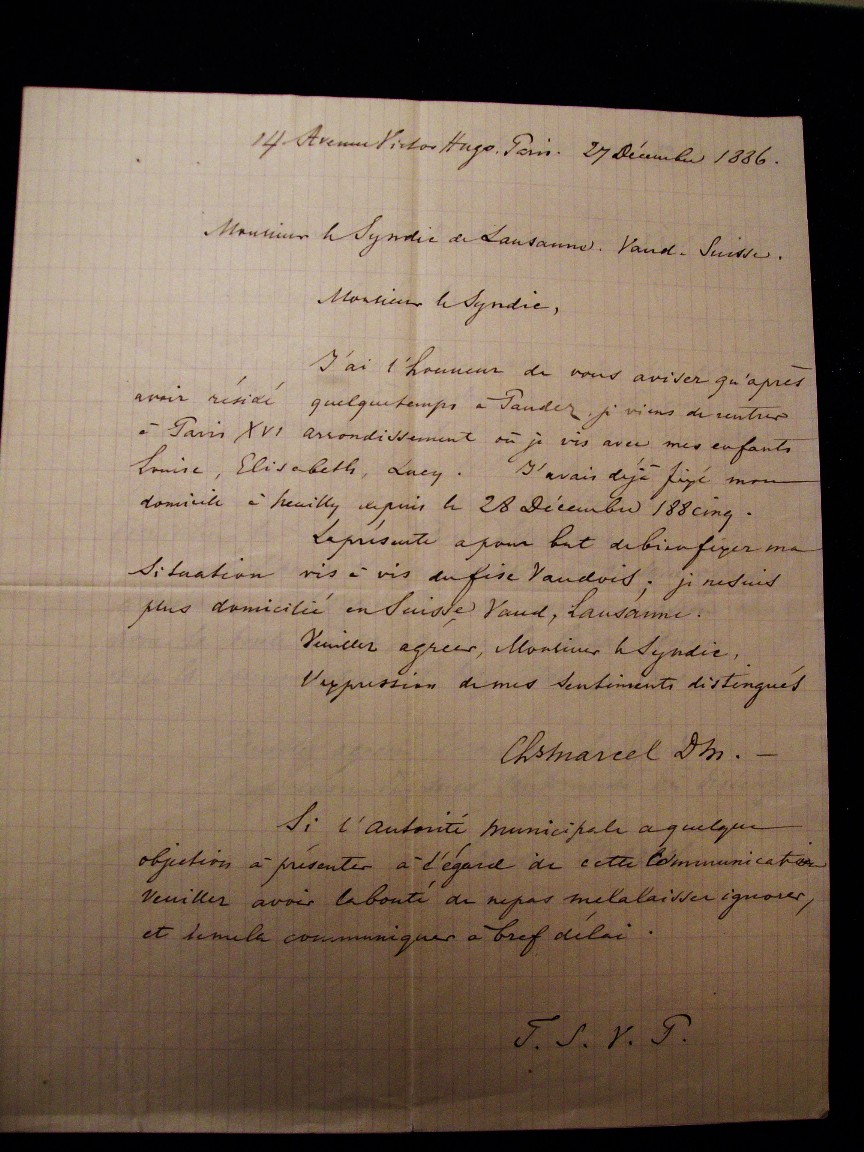 14 Avenue Victor Hugo. Paris. 27 Décembre 1886.
Monsieur le Syndic de Lausanne. Vaud. Suisse.
Monsieur le Syndic,
J'ai l'honneur de vous aviser qu'après
avoir résidé quelque temps à Paudez, je viens de rentrer
à Paris XVI arrondissement où je vis avec mes enfants
Louise, Elisabeth, Lucy. J'avais déjà fixé mon
domicile à Neuilly depuis le 28 Décembre 188cinq.
La présente a pour but de bien fixer ma
situation vis à vis du fisc Vaudois; je ne suis
plus domicilié en Suisse, Vaud, Lausanne.
Veuillez agréer, Monsieur le Syndic,
l'expression de mes sentiments distingués
Chs Marcel Dm. —
Si l'autorité municipale a quelque
objection à présenter à l'égard de cette communication
veuillez avoir la bonté de ne pas me la laisser ignorer,
et de me la communiquer à bref délai.
T. S. V. P.